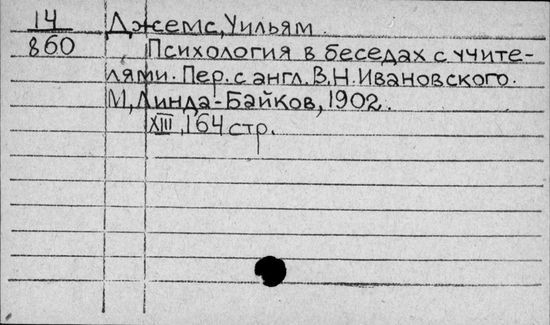 14 Джемс, Уильям.
860 Психология в беседах с учите-
лями. Пер. с англ. В.Н. Ивановского.
М, Линда-Байков, 1902.
XIII, 164 стр.